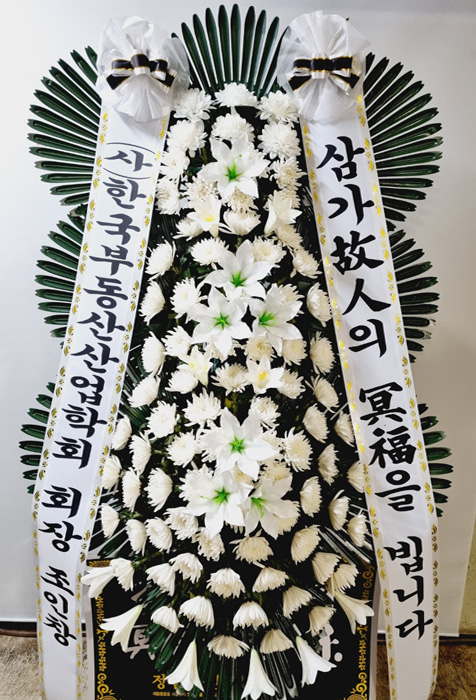 (사)한국부동산산업학회 회장 조인창
삼가 故人의 冥福을 빕니다